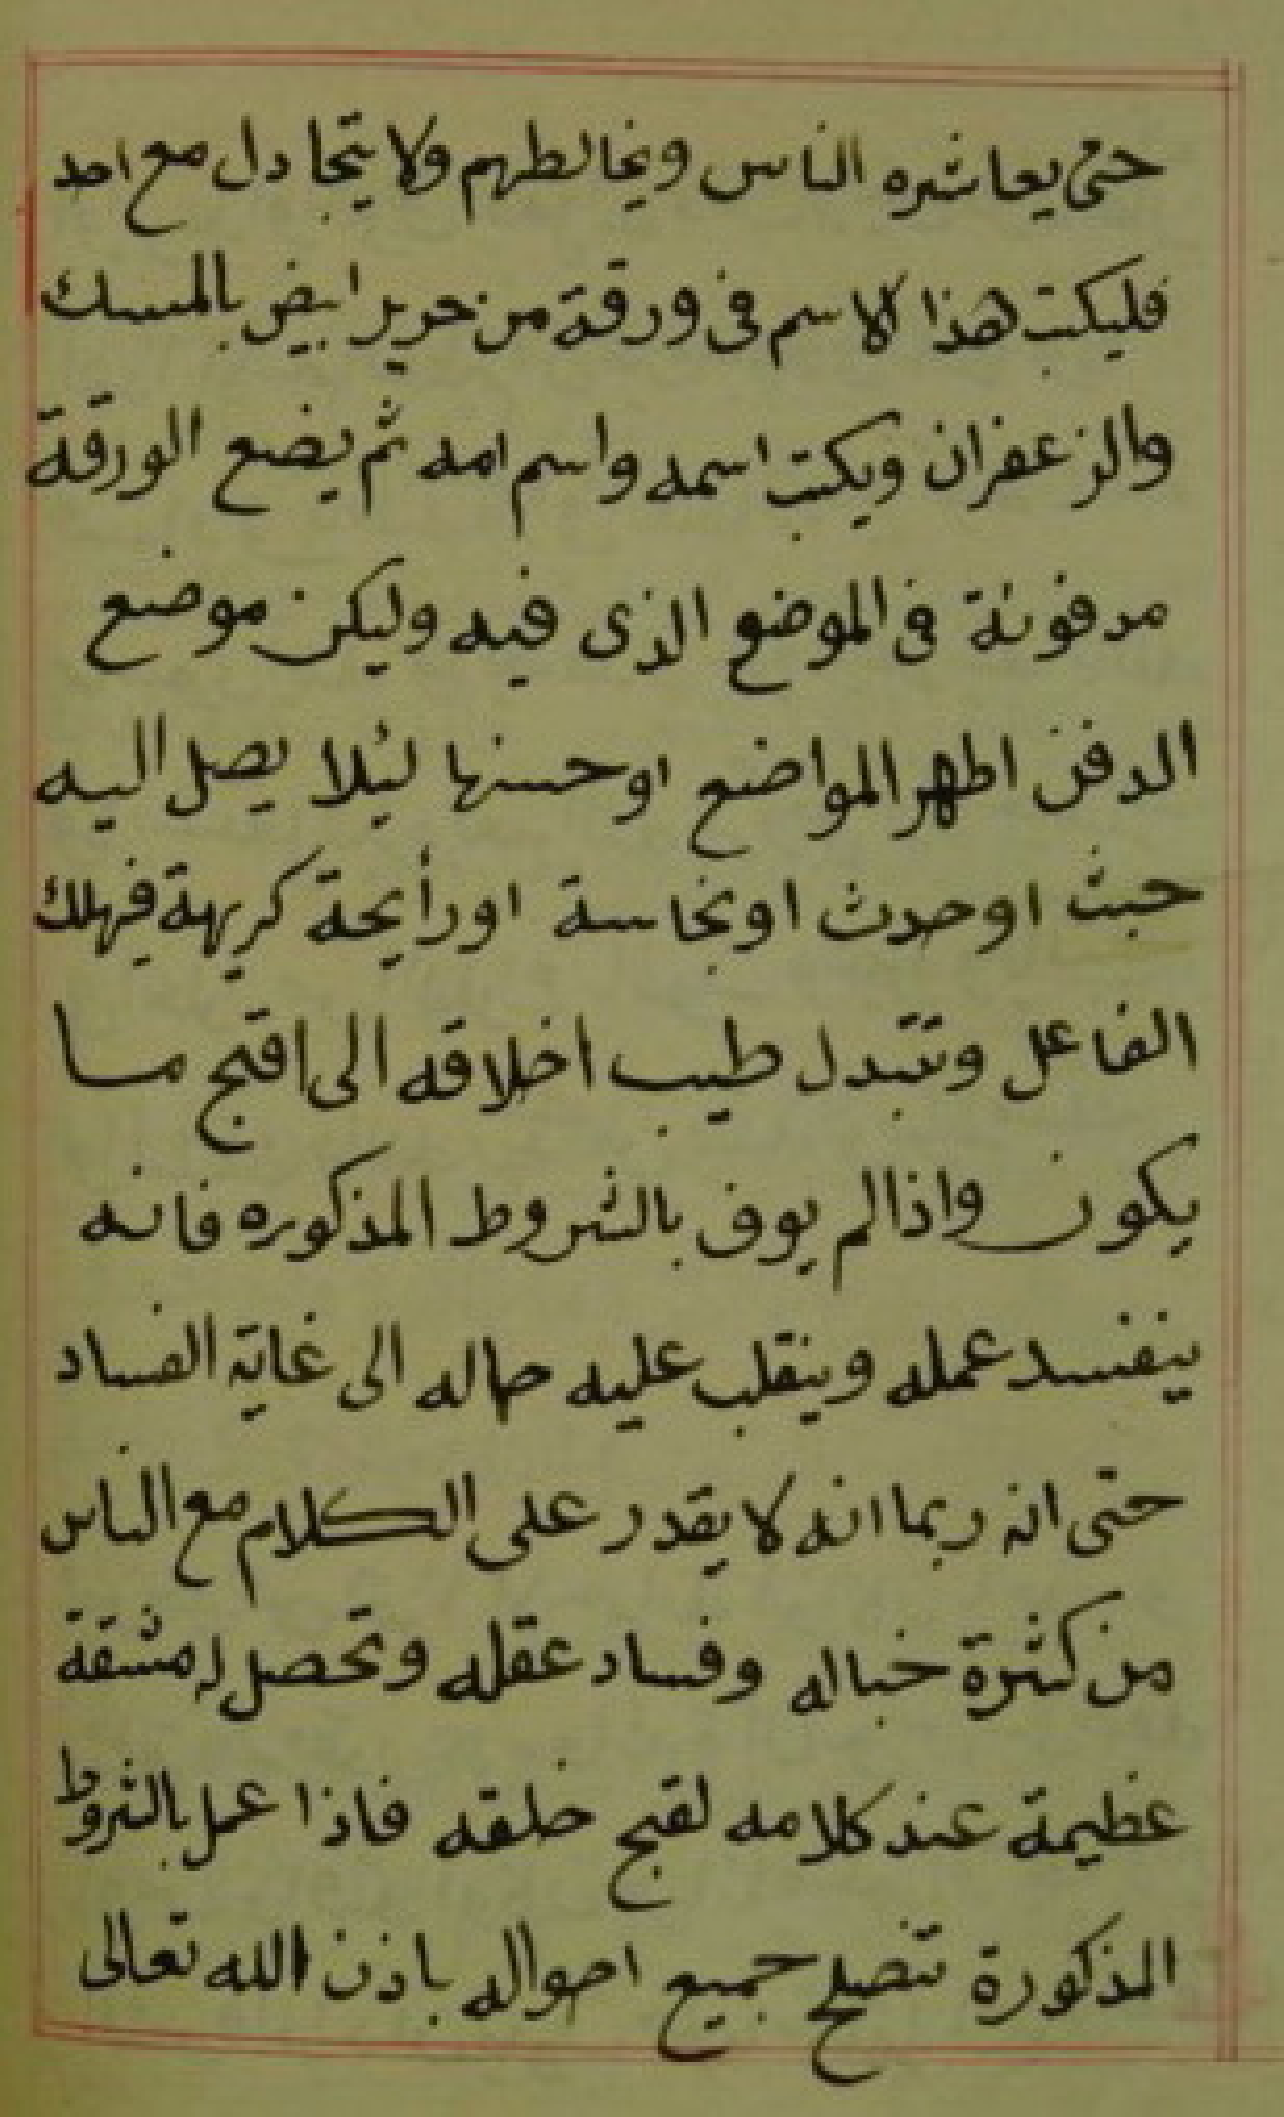 حتى يعاشره الناس ويخالطهم ولا يتجادل مع احد
فليكتب هذا الاسم فى ورقة من حرير ابيض بالمسك
والزعفران ويكتب اسمه واسم امه ثم يضع الورقة
مدفونة فى الموضع الذى فيه وليكن موضع
الدفن اطهر المواضع اوحسنها لئلا يصل اليه
خبث اوحدث اونجاسة اورأيحة كريهة فيهلك
الفاعل وتتبدل طيب اخلاقه الى اقبح مسا
يكون واذا لم يوف بالشروط المذكوره فانه
ينفسد عمله وينقلب عليه حاله الى غاية الفساد
حتى انه ربما انه لا يقدر على الكلام مع الناس
من كثرة خباله وفساد عقله وتحصل له مشقة
عظيمة عند كلامه لقبح خلقه فاذا عمل بالشروط
المذكورة تنصلح جميع احواله باذن الله تعالى